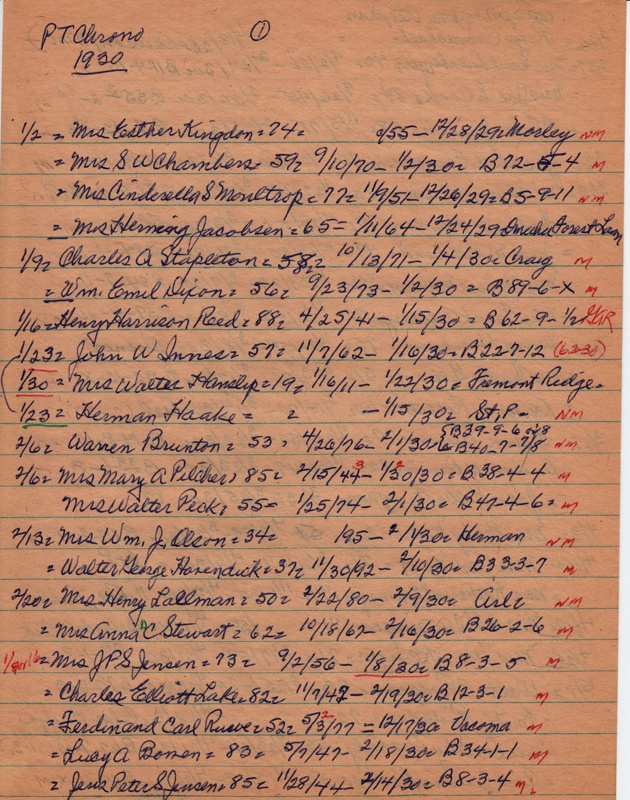 PT Chrono ①
1930
1/2 = Mrs Esther Kingdon = 74 = 1/55 - 12/28/29 = Morley NM
= Mrs S W Chambers = 59 = 9/10/70 - 1/2/30 = B72-5-4 M
= Mrs Cinderella S Moultrop = 77 = 11/9/51 - 12/26/29 = B5-9-11 NM
= Mrs Herning Jacobsen = 65 = 1/11/64 - 12/24/29 = Omaha Forest Lawn
1/9 = Charles A Stapleton = 58 = 10/13/71 - 1/4/30 = Craig M
= Wm. Emil Dixon = 56 = 9/23/73 - 1/2/30 = B89-6-X M
1/16 = Henry Harrison Reed = 88 = 4/25/41 - 1/15/30 = B62-9-1/2 GAR
1/23 = John W Inness = 57 = 11/7/62 - 1/16/30 = B22-7-12 (62-30)
1/30 = Mrs Walter Hanslip = 19 = 1/16/11 - 1/22/30 = Fremont Ridge =
1/23 = Herman Haake = = - 1/15/30 = St. P - NM
2/6 = Warren Brunton = 53 = 4/26/76 - 2/1/30 = {B39-9-6 or 8
B40-7-7/8 NM
2/6 = Mrs Mary A Pilcher = 85 = 2/15/44 3 - 1/30/30 2 = B38-4-4 M
Mrs Walter Peck = 55 = 1/25/74 - 2/1/30 = B47-4-6 = M
2/13 = Mrs Wm. J. Olson = 34 = 195 - 2/1/30 = Herman NM
= Walter George Havendick = 37 = 11/30/92 - 2/10/30 = B33-3-7 M
2/20 = Mrs Henry Lallman = 50 = 2/22/80 - 2/9/30 = Arl = NM
= Mrs Anna C Stewart = 62 = 10/18/67 - 2/16/30 = B26-2-6 M
= Mrs J P S Jensen = 73 = 9/2/56 - 1/8/30 = B8-3-5 M
= Charles Elliott Lake = 82 = 11/7/47 - 2/19/30 = B12-3-1 M
= Ferdinand Carl = 52 = 5/3/77 2 = 12/17/30 = Vacoma M
= Lucy A Bowen = 83 = 5/7/47 - 2/18/30 = B34-1-1 M
= Jens Peter S Jensen = 85 = 11/28/44 - 2/14/30 = B8-3-4 M